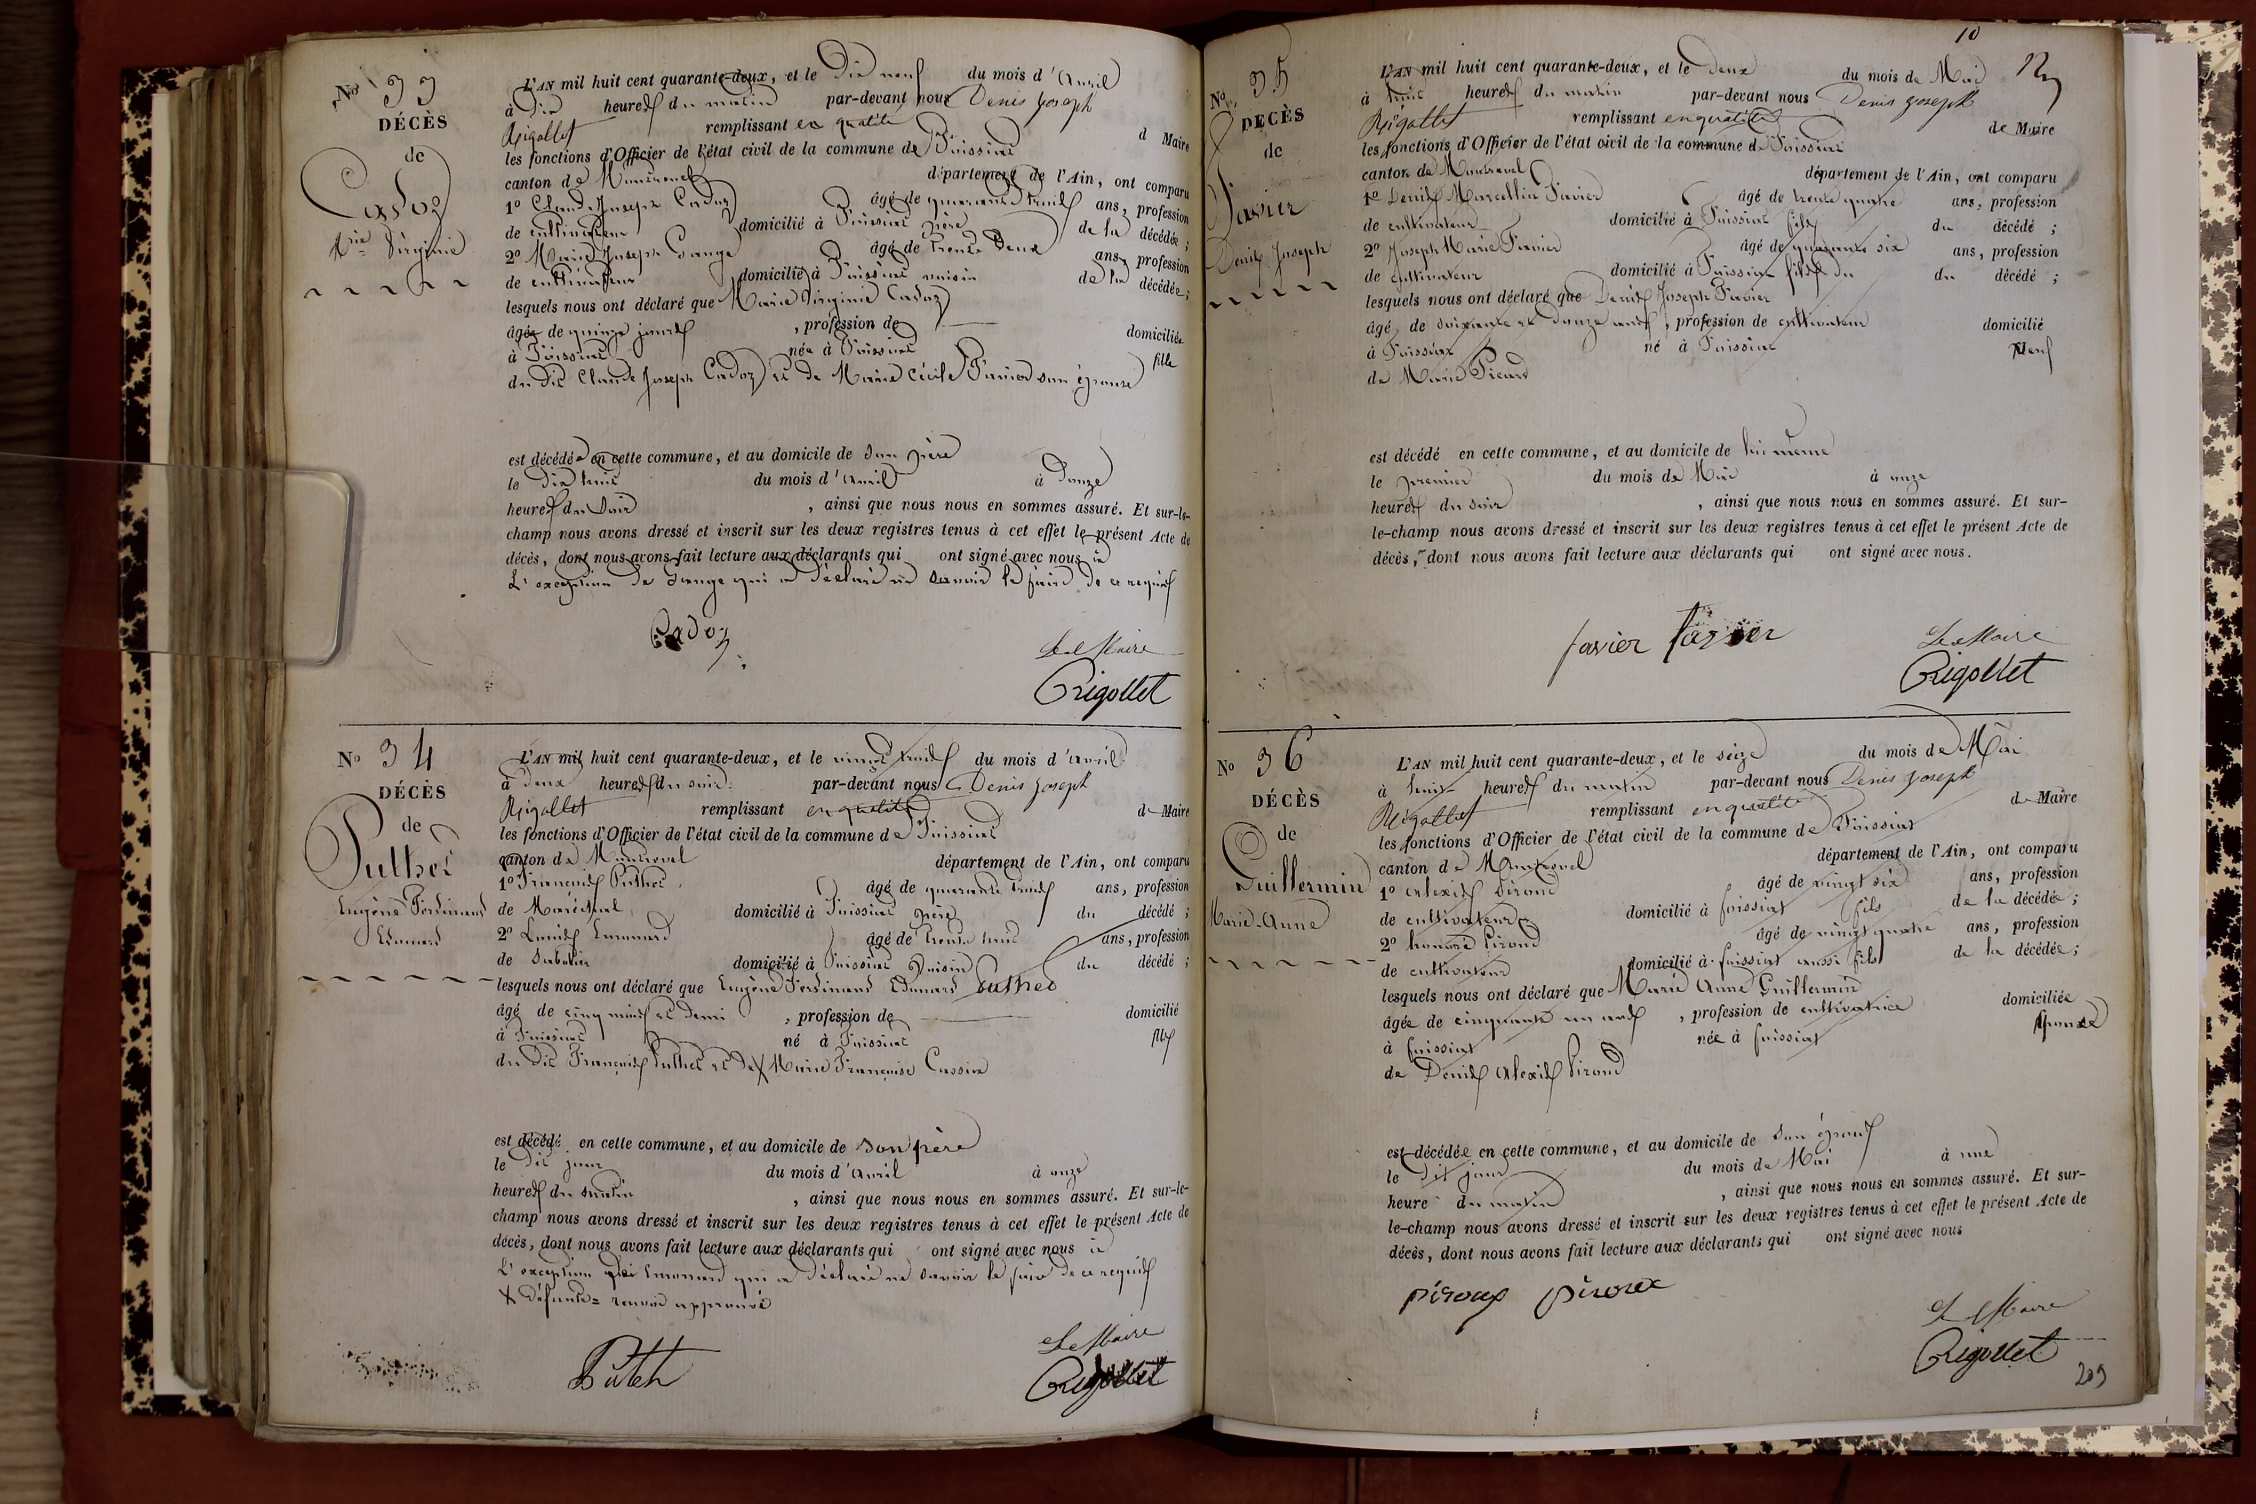 No 33
DÉCÈS
de
Cadoz
Mie Virginie
L'AN mil huit cent quarante-deux, et le Dix neuf du mois d'avril
à Dix heures du matin par-devant nous Denis Joseph
Rigollet remplissant en qualité d Maire
les fonctions d'Officier de l'état civil de la commune de Foissiat
canton de Montrevel département de l'Ain, ont comparu
1º Claude Joseph Cadoz âgé de quarante trois ans, profession
de cultivateur domicilié à Foissiat père de la décédée ;
2º Marie Joseph Sange âgé de trente Deux ans, profession
de cultivateur domicilié à Foissiat voisin de la décédée ;
lesquels nous ont déclaré que Marie Virginie Cadoz
âgée de quinze jours , profession de domiciliée
à Foissiat née à Foissiat fille
du dit Claude Joseph Cadoz et de Marie Cécile Favier son épouse
est décédée en cette commune, et au domicile de son père
le Dix huit du mois d'avril à Douze
heures du soir , ainsi que nous nous en sommes assuré. Et sur-le-
champ nous avons dressé et inscrit sur les deux registres tenus à cet effet le présent Acte de
décès, dont nous avons fait lecture aux déclarants qui ont signé avec nous à
L'exception de Sange qui a déclaré ne savoir le faire de ce requis
Cadoz
Le Maire
Rigollet
No 34
DÉCÈS
de
Puthet
Eugène Ferdinand
Edouard
L'AN mil huit cent quarante-deux, et le vingt trois du mois d'avril
à deux heures du soir par-devant nous Denis Joseph
Rigollet remplissant en qualité de Maire
les fonctions d'Officier de l'état civil de la commune de Foissiat
canton de Montrevel département de l'Ain, ont comparu
1º François Puthet âgé de quarante trois ans, profession
de Maréchal domicilié à Foissiat père du décédé ;
2º Louis âgé de trente huit ans, profession
de sabotier domicilié à Foissiat Voisin du décédé ;
lesquels nous ont déclaré que Eugène Ferdinand Edouard Puthet
âgé de cinq mois et demi , profession de domicilié
à Foissiat né à Foissiat fils
du dit François Puthet et de X Marie Françoise
est décédé en cette commune, et au domicile de son père
le Dit jour du mois d'avril à onze
heures du matin , ainsi que nous nous en sommes assuré. Et sur-le-
champ nous avons dressé et inscrit sur les deux registres tenus à cet effet le présent Acte de
décès, dont nous avons fait lecture aux déclarants qui ont signé avec nous à
L'exception qui a déclaré ne savoir le faire de ce requis
X défunte = renvoi approuvé
Puteh
Le Maire
Rigollet
10
No 35
DÉCÈS
de
Favier
Denis Joseph
L'AN mil huit cent quarante-deux, et le deux du mois de Mai
à huit heures du matin par-devant nous Denis Joseph
Rigollet remplissant en qualité de Maire
les fonctions d'Officier de l'état civil de la commune de Foissiat
canton de Montrevel département de l'Ain, ont comparu
1º Denis Marcellin Favier âgé de trente quatre ans, profession
de cultivateur domicilié à Foissiat fils du décédé ;
2º Joseph Marie Favier âgé de quarante six ans, profession
de cultivateur domicilié à Foissiat fils du du décédé ;
lesquels nous ont déclaré que Denis Joseph Favier
âgé de soixante et douze ans , profession de cultivateur domicilié
à Foissiat né à Foissiat Veuf
de Marie Picard
est décédé en cette commune, et au domicile de lui même
le premier du mois de Mai à onze
heures du soir , ainsi que nous nous en sommes assuré. Et sur-
le-champ nous avons dressé et inscrit sur les deux registres tenus à cet effet le présent Acte de
décès, dont nous avons fait lecture aux déclarants qui ont signé avec nous.
favier favier
Le Maire
Rigollet
No 36
DÉCÈS
de
Guillermin
Marie-Anne
L'AN mil huit cent quarante-deux, et le seize du mois de Mai
à huit heures du matin par-devant nous Denis Joseph
Rigollet remplissant en qualité de Maire
les fonctions d'Officier de l'état civil de la commune de Foissiat
canton de Montrevel département de l'Ain, ont comparu
1º alexis Piroud âgé de vingt six ans, profession
de cultivateur domicilié à foissiat fils de la décédée ;
2º honoré Piroud âgé de vingt quatre ans, profession
de cultivateur domicilié à foissiat aussi fils de la décédée ;
lesquels nous ont déclaré que Marie Anne Guillermin
âgée de cinquante un ans , profession de cultivatrice domiciliée
à foissiat née à foissiat épouse
de Denis alexis Piroud
est décédée en cette commune, et au domicile de son époux
le dit jour du mois de Mai à une
heure du matin , ainsi que nous nous en sommes assuré. Et sur-
le-champ nous avons dressé et inscrit sur les deux registres tenus à cet effet le présent Acte de
décès, dont nous avons fait lecture aux déclarants qui ont signé avec nous
piroux piroux
Le Maire
Rigollet
209